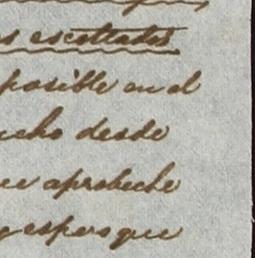 s escoltados
posible en el
ucho desde
ue aprobeche
y espero que